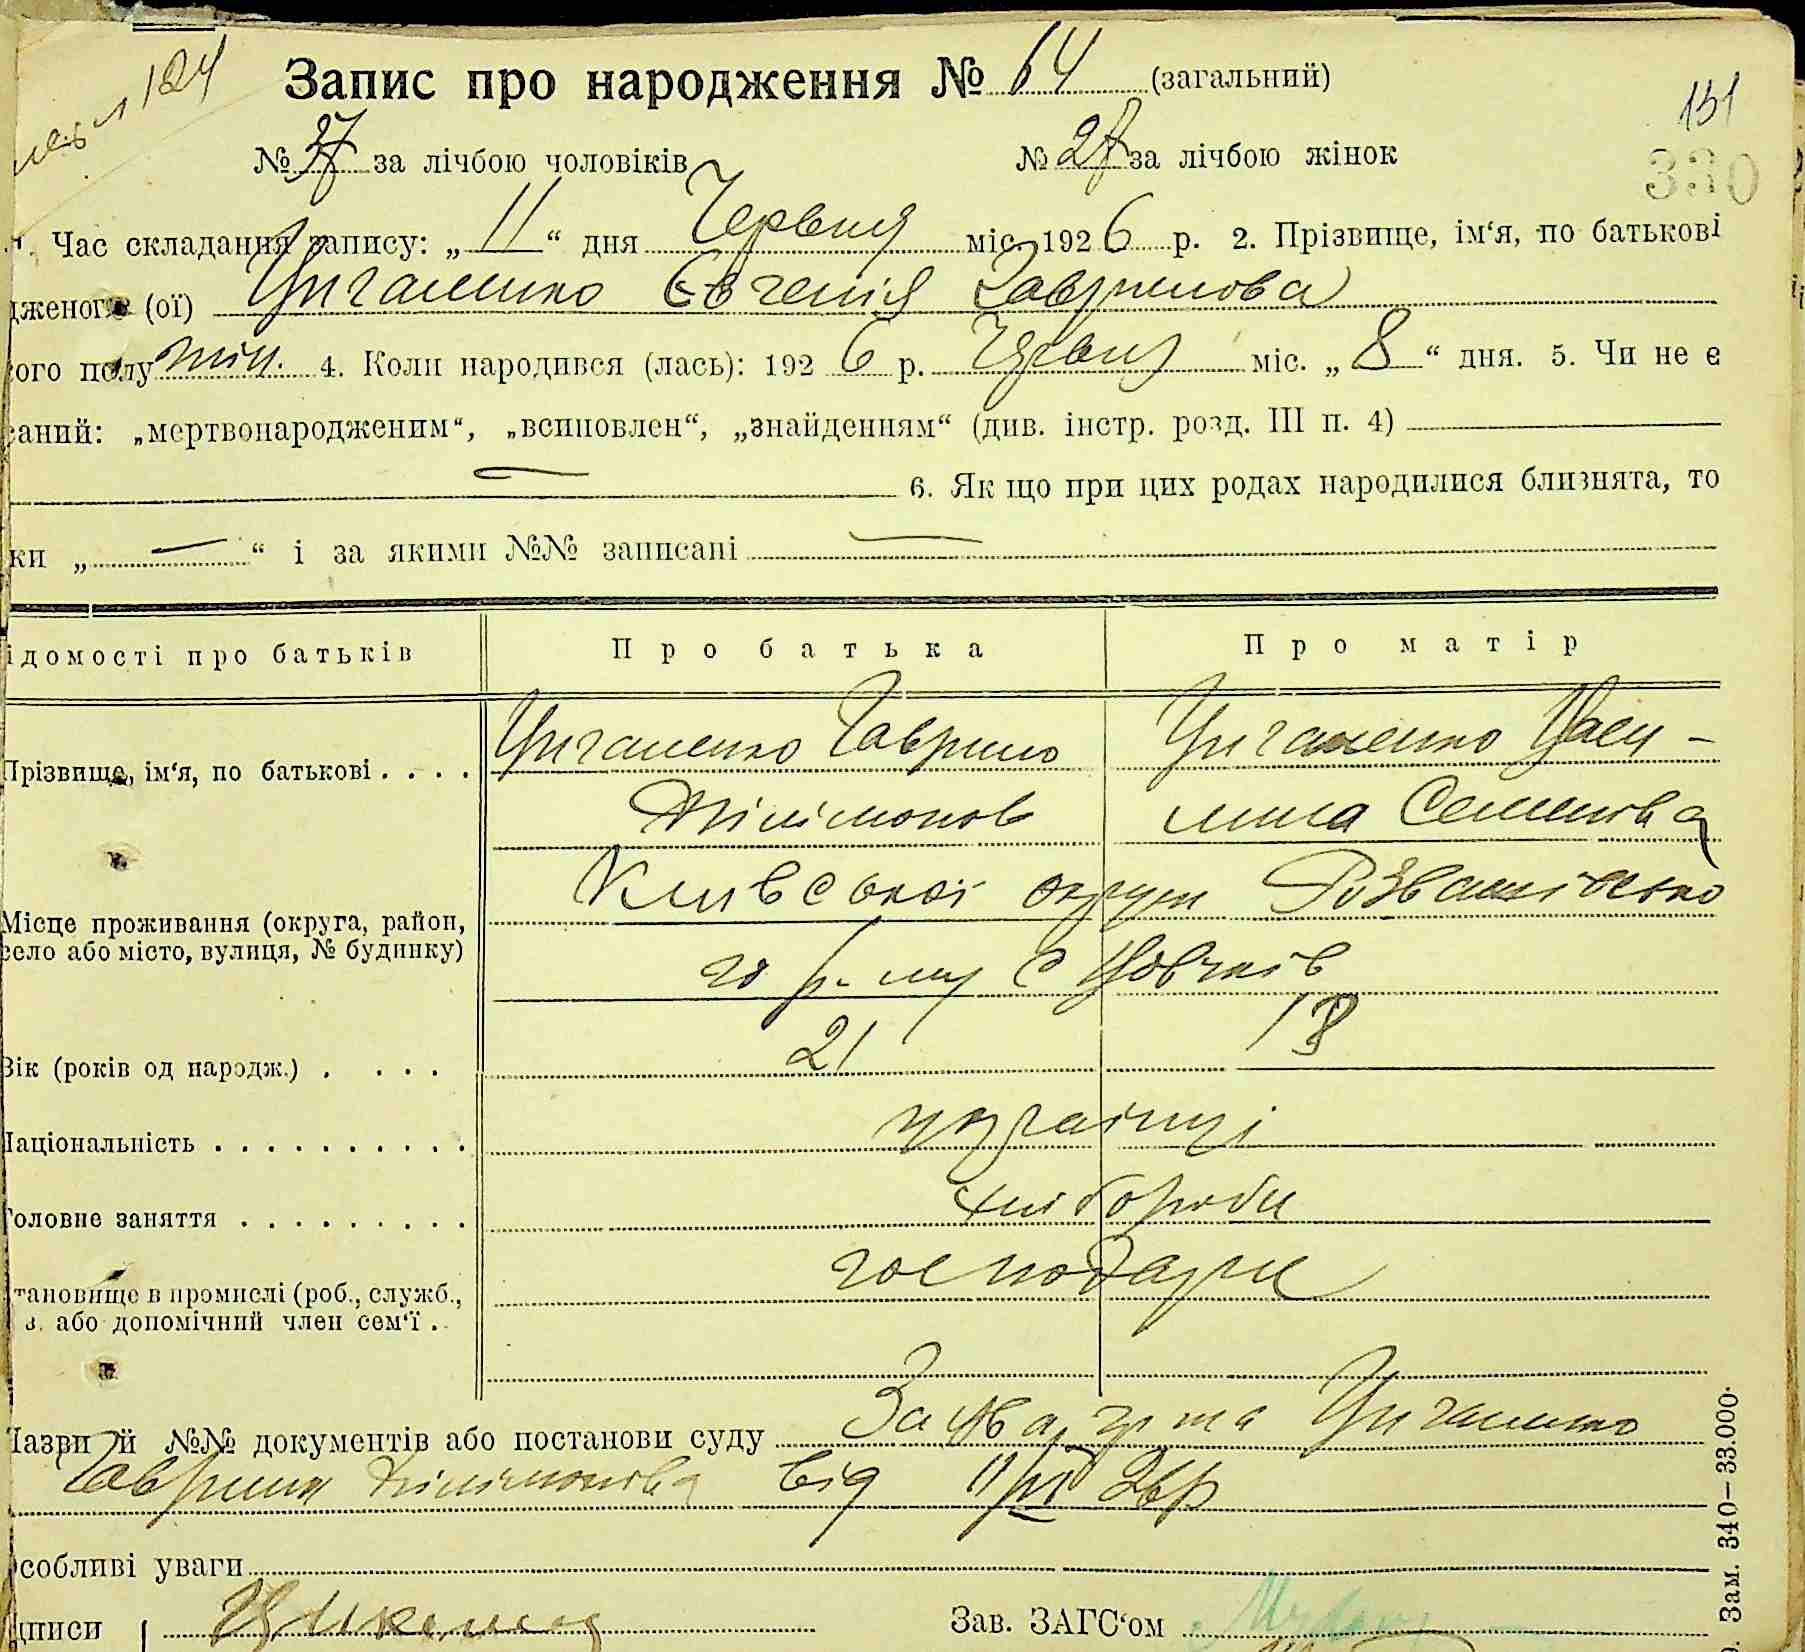 124
Запис про народження № 64 (загальний)
131
№ 37 за лічбою чоловіків № 27 за лічбою жінок
330
Час складання запису: „11“ дня Червня міс. 1926 р. 2. Прізвище, ім‘я, по батькові
дженого (ої) Циганенко Євгенія Гаврилова
ого полу жін. 4. Коли народився (лась): 1926 р. Червня міс. „8“ дня. 5. Чи не є
саний: „мертвонародженим“, „всиновлен“, „знайденням“ (див. інстр. розд. III п. 4) —
— 6. Як що при цих родах народилися близнята, то
ки „—“ і за якими №№ записані —
ідомості про батьків Про батька Про матір
Циганенко Гаврило Циганенко
Прізвище, ім‘я, по батькові . . . .
Філімонов Семенова
Київської округи Розважівсько
Місце проживання (округа, район,
село або місто, вулиця, № будинку)
го р-ну с
Вік (років од народж.) . . . . 21 18
Національність . . . . . . . . . . українці
Головне заняття . . . . . . . . . хлібороби
господарі
тановище в промислі (роб., служб.,
з. або допомічний член сем‘ї . .
Назви й №№ документів або постанови суду Заява гр-на Циганенко
Гаврила Філімонова від
собливі уваги
дписи Зав. ЗАГС‘ом
Зам. 340—33.000.